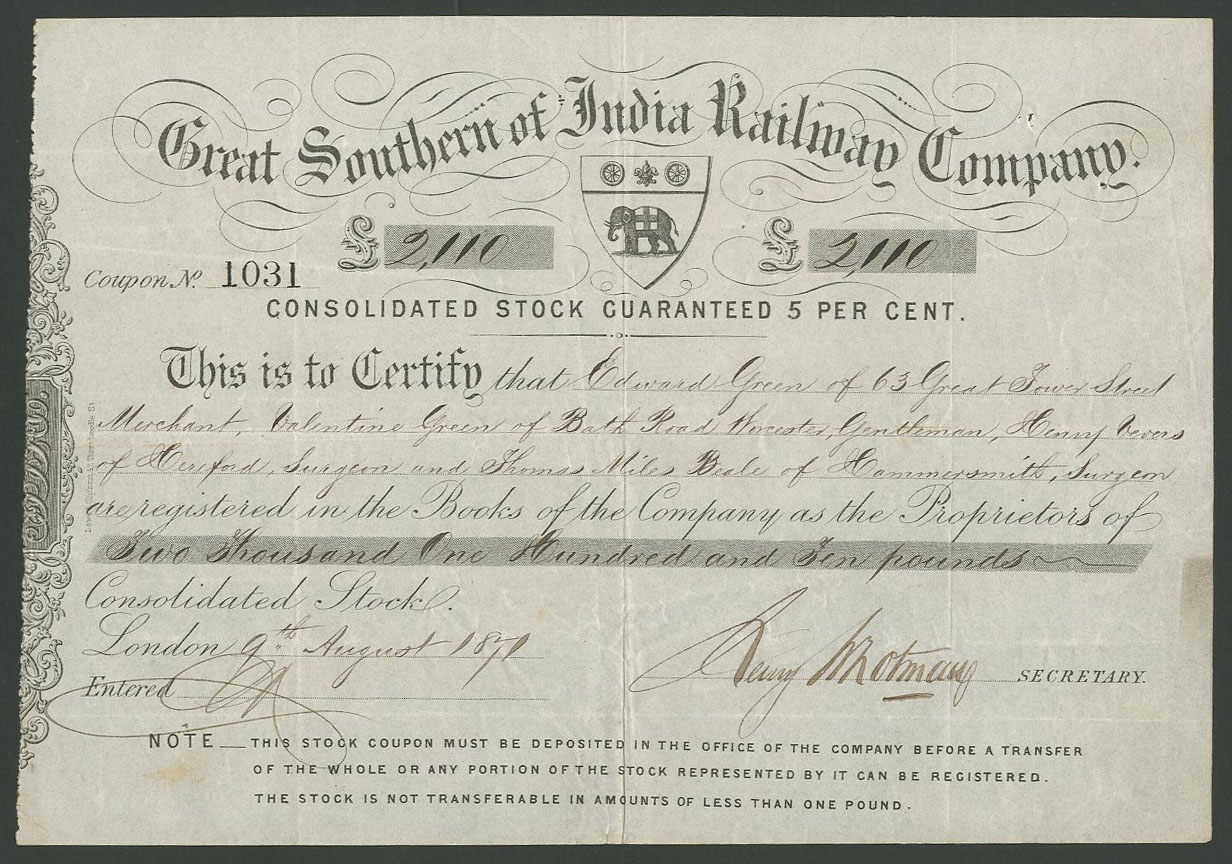 Great Southern of India Railway Company.
£ 2,110 £ 2,110
Coupon No. 1031
CONSOLIDATED STOCK GUARANTEED 5 PER CENT.
This is to Certify that Edward Green of 63 Great Tower Street
Merchant, Valentine Green of Bath Road Worcester, Gentleman, Henry Vevers
of Hereford, Surgeon and Thomas Miles Beale of Hammersmith, Surgeon
are registered in the Books of the Company as the Proprietors of
Two Thousand One Hundred and Ten pounds
Consolidated Stock.
London 9th August 1871
Entered
Henry SECRETARY.
NOTE — THIS STOCK COUPON MUST BE DEPOSITED IN THE OFFICE OF THE COMPANY BEFORE A TRANSFER
OF THE WHOLE OR ANY PORTION OF THE STOCK REPRESENTED BY IT CAN BE REGISTERED.
THE STOCK IS NOT TRANSFERABLE IN AMOUNTS OF LESS THAN ONE POUND.